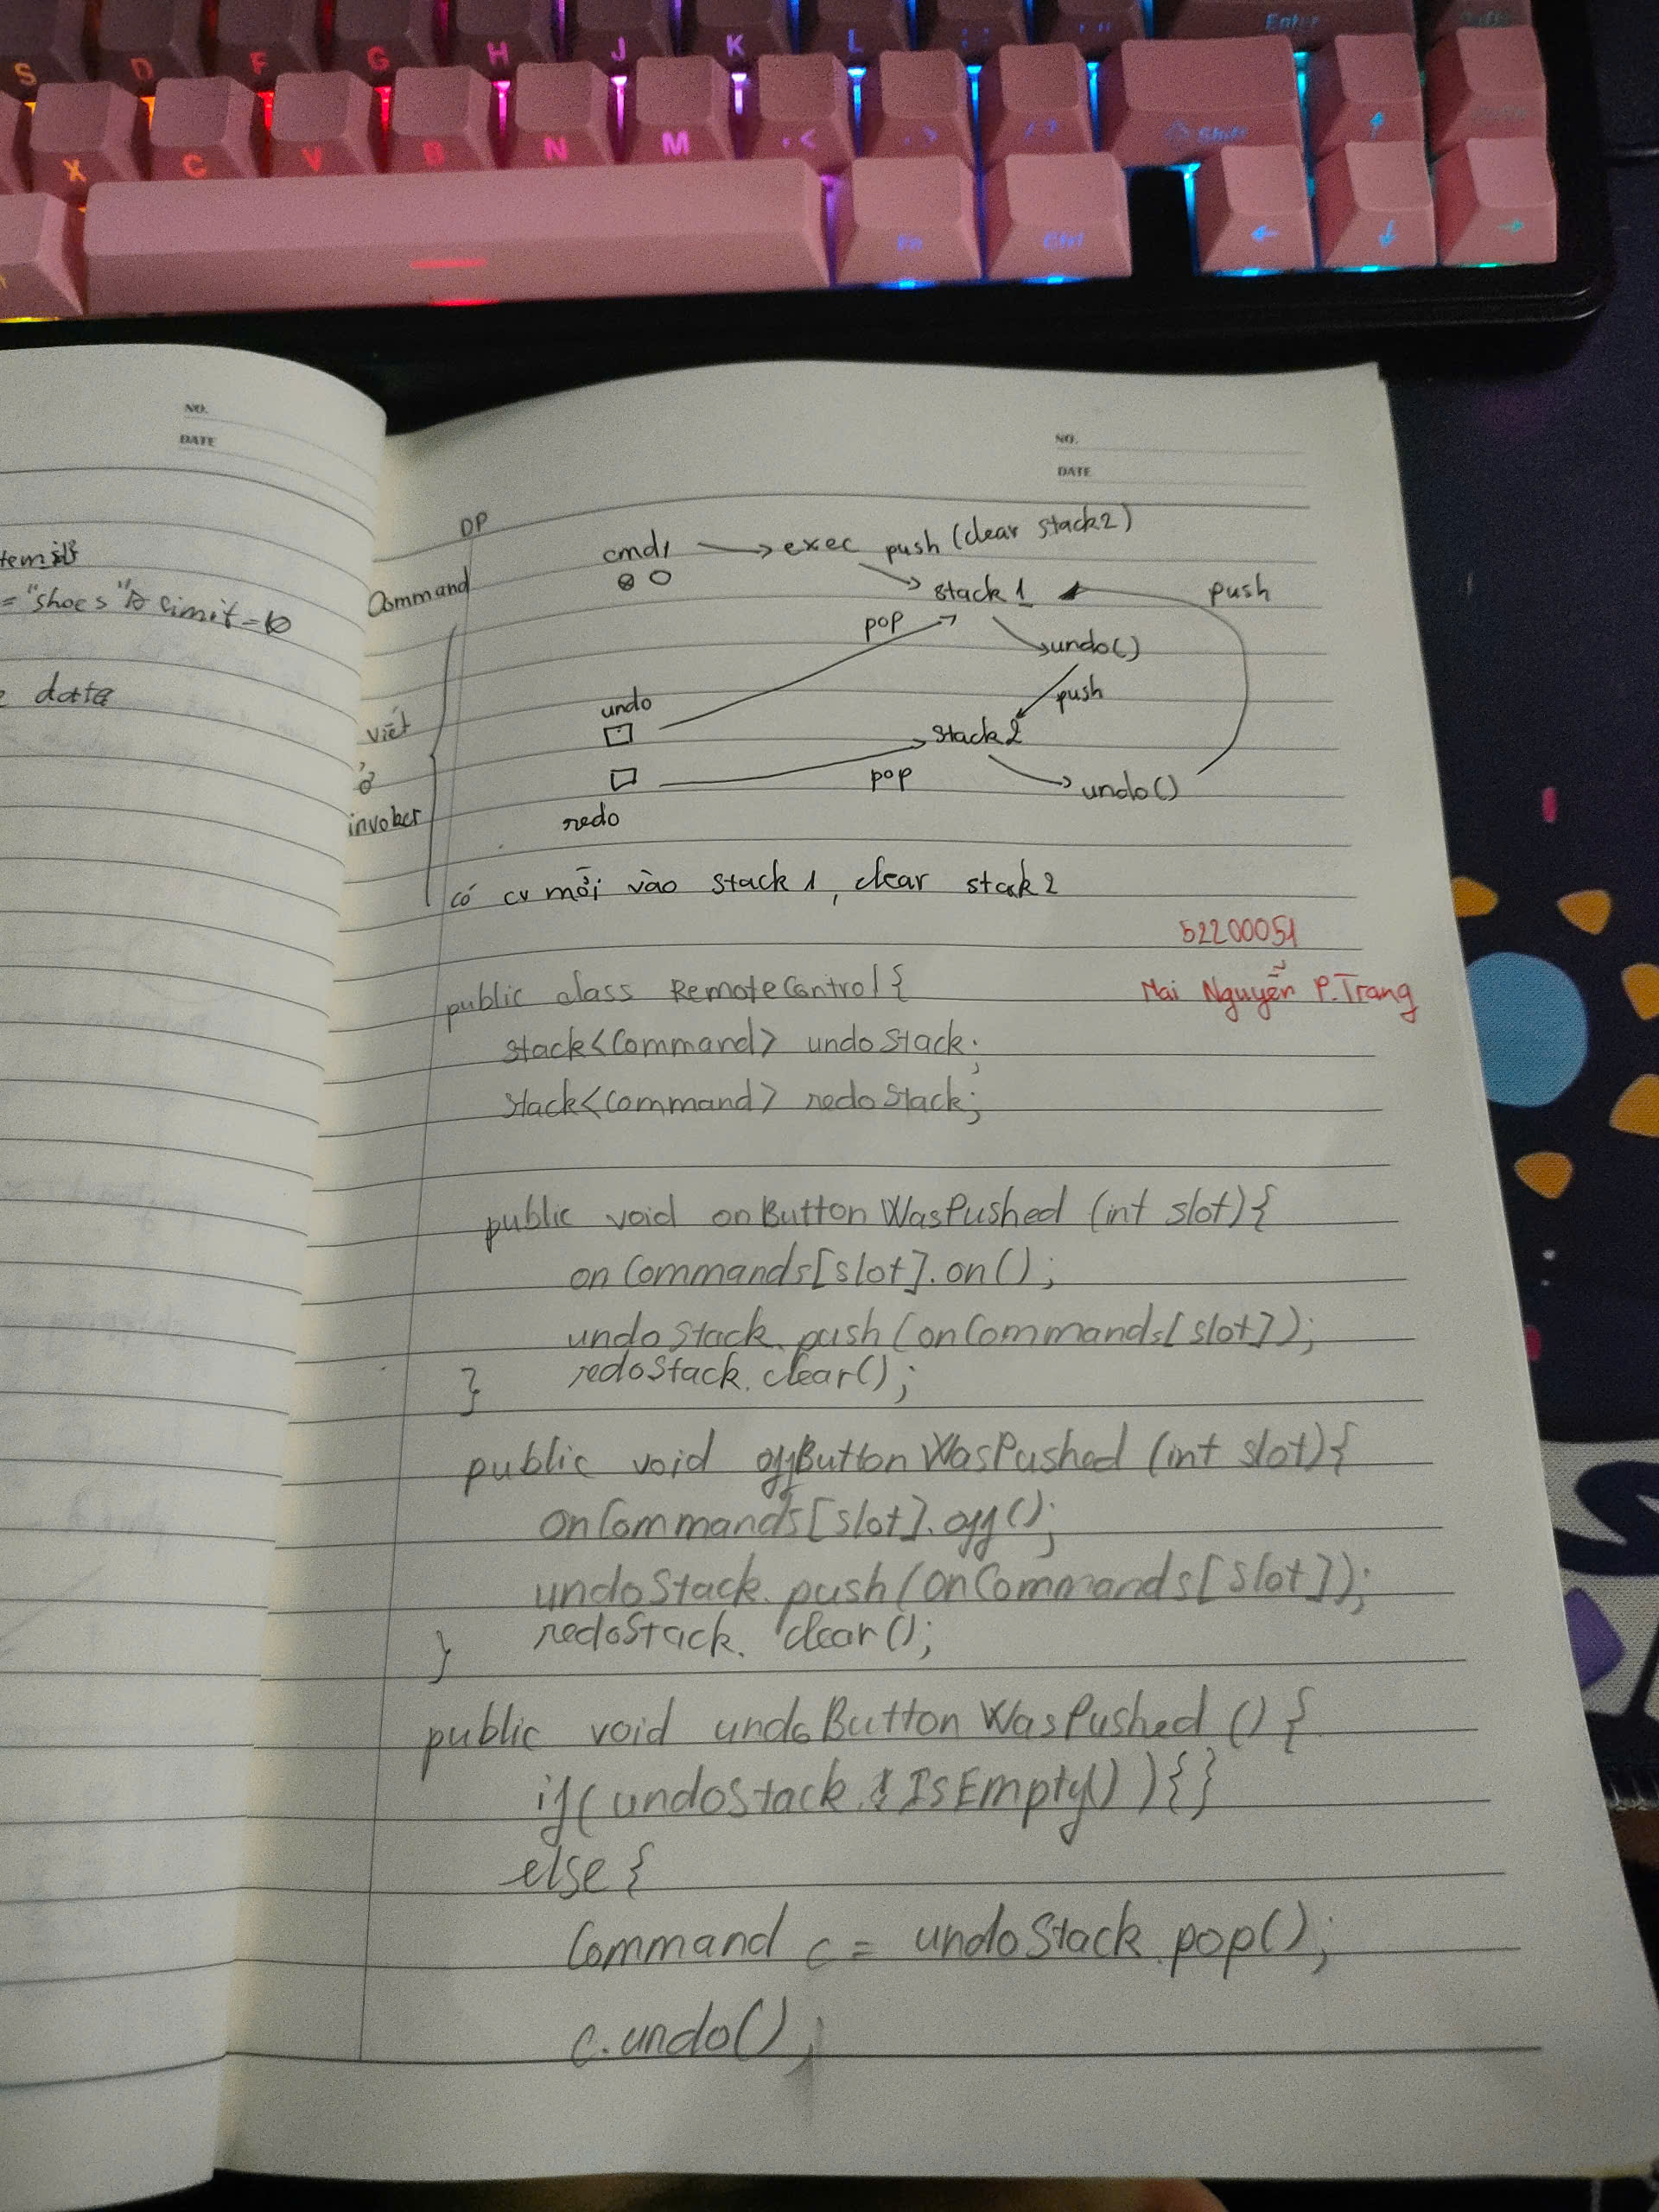 S D F G H J K L : ; " ' Enter
X C V B N M , < . > / ? Shift ↑
Fn Ctrl ← ↓ →
NO.
DATE
= "shoes" limit = 10
data
NO.
DATE
DP
Command
cmd1 → exec push (clear stack2)
stack 1 push
pop
undo()
push
undo
stack2
pop
undo()
redo
viết
ở
invoker
có cv mới vào stack 1, clear stack 2
52200051
Mai Nguyễn P.Trang
public class RemoteControl {
stack<Command> undoStack;
stack<Command> redoStack;
public void onButtonWasPushed (int slot){
onCommands[slot].on();
undoStack.push(onCommands[slot]);
} redoStack.clear();
public void offButtonWasPushed (int slot){
onCommands[slot].off();
undoStack.push(onCommands[slot]);
} redoStack. clear();
public void undoButtonWasPushed () {
if(undoStack.IsEmpty()){}
else {
Command c = undoStack.pop();
c.undo();